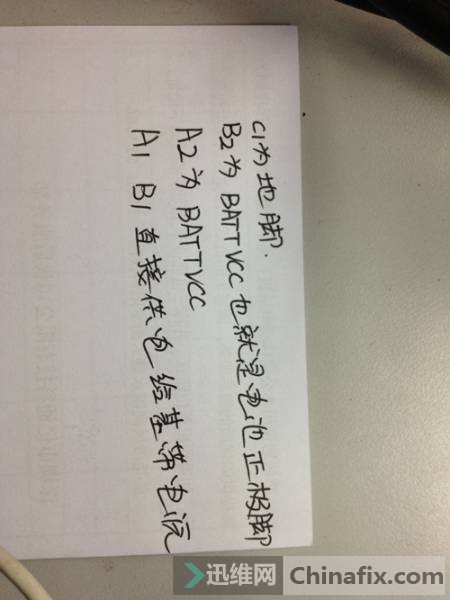 C1为地脚.
B2为BATTVCC也就是电池正极脚
A2为BATTVCC
A1 B1直接供电给基带电源
迅维网 Chinafix.com